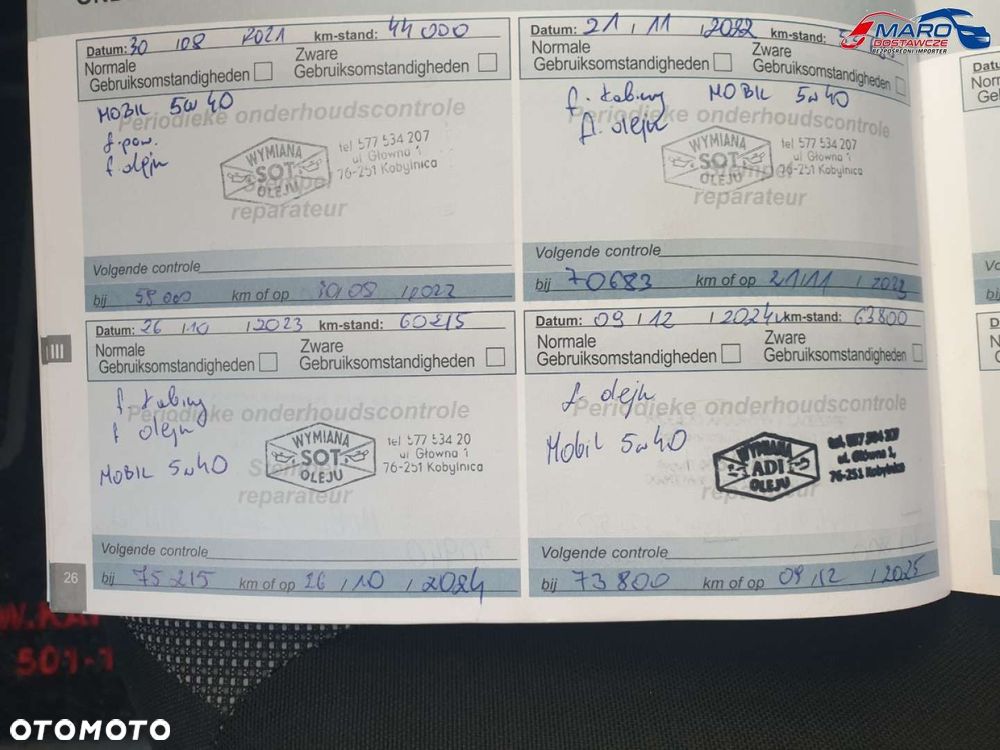 MARO
DOSTAWCZE
BEZPOŚREDNI IMPORTER
Datum: 30 / 08 / 2021 km-stand: 44 000
Normale
Gebruiksomstandigheden
Zware
Gebruiksomstandigheden
MOBIL 5w40
Periodieke onderhoudscontrole
f. pow.
f oleju
WYMIANA
SOT
OLEJU
tel 577 534 207
ul Główna 1
76-251 Kobylnica
reparateur
Volgende controle
bij 59 000 km of op 30/08 / 2022
Datum: 21 / 11 / 2022 km-stand:
Normale
Gebruiksomstandigheden
Zware
Gebruiksomstandigheden
f. kabiny MOBIL 5w40
Periodieke onderhoudscontrole
fl. oleju
WYMIANA
SOT
OLEJU
tel 577 534 207
ul Główna 1
76-251 Kobylnica
Stempel
reparateur
Volgende controle
bij 70683 km of op 21/11 / 2023
III
Datum: 26 / 10 / 2023 km-stand: 60215
Normale
Gebruiksomstandigheden
Zware
Gebruiksomstandigheden
f. kabiny
Periodieke onderhoudscontrole
f oleju
MOBIL 5w40
WYMIANA
SOT
OLEJU
tel 577 534 20
ul Główna 1
76-251 Kobylnica
reparateur
Volgende controle
bij 75215 km of op 26 / 10 / 2024
Datum: 09 / 12 / 2024 km-stand: 63800
Normale
Gebruiksomstandigheden
Zware
Gebruiksomstandigheden
f. oleju
Periodieke onderhoudscontrole
Mobil 5w40
WYMIANA
ADI
OLEJU
tel. 577 534 207
ul. Główna 1,
76-251 Kobylnica
reparateur
Volgende controle
bij 73 800 km of op 09 / 12 / 2025
26
501-1
OTOMOTO